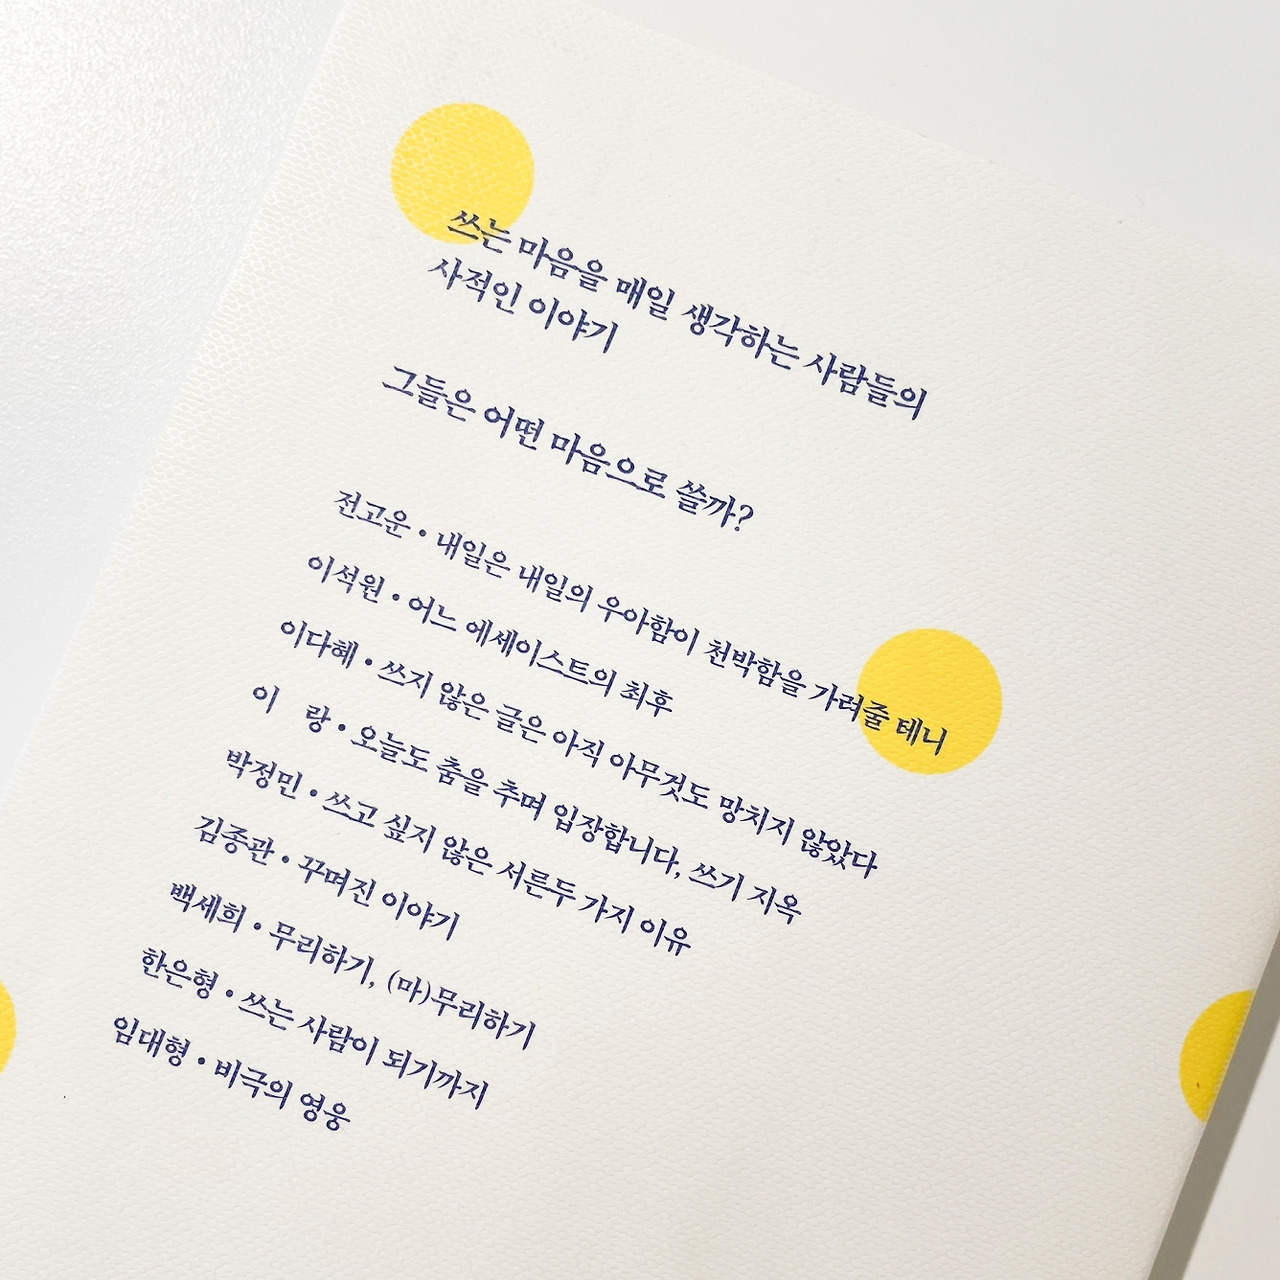 쓰는 마음을 매일 생각하는 사람들의
사적인 이야기
그들은 어떤 마음으로 쓸까?
전고운 • 내일은 내일의 우아함이 천박함을 가려줄 테니
이석원 • 어느 에세이스트의 최후
이다혜 • 쓰지 않은 글은 아직 아무것도 망치지 않았다
이 랑 • 오늘도 춤을 추며 입장합니다, 쓰기 지옥
박정민 • 쓰고 싶지 않은 서른두 가지 이유
김종관 • 꾸며진 이야기
백세희 • 무리하기, (마)무리하기
한은형 • 쓰는 사람이 되기까지
임대형 • 비극의 영웅